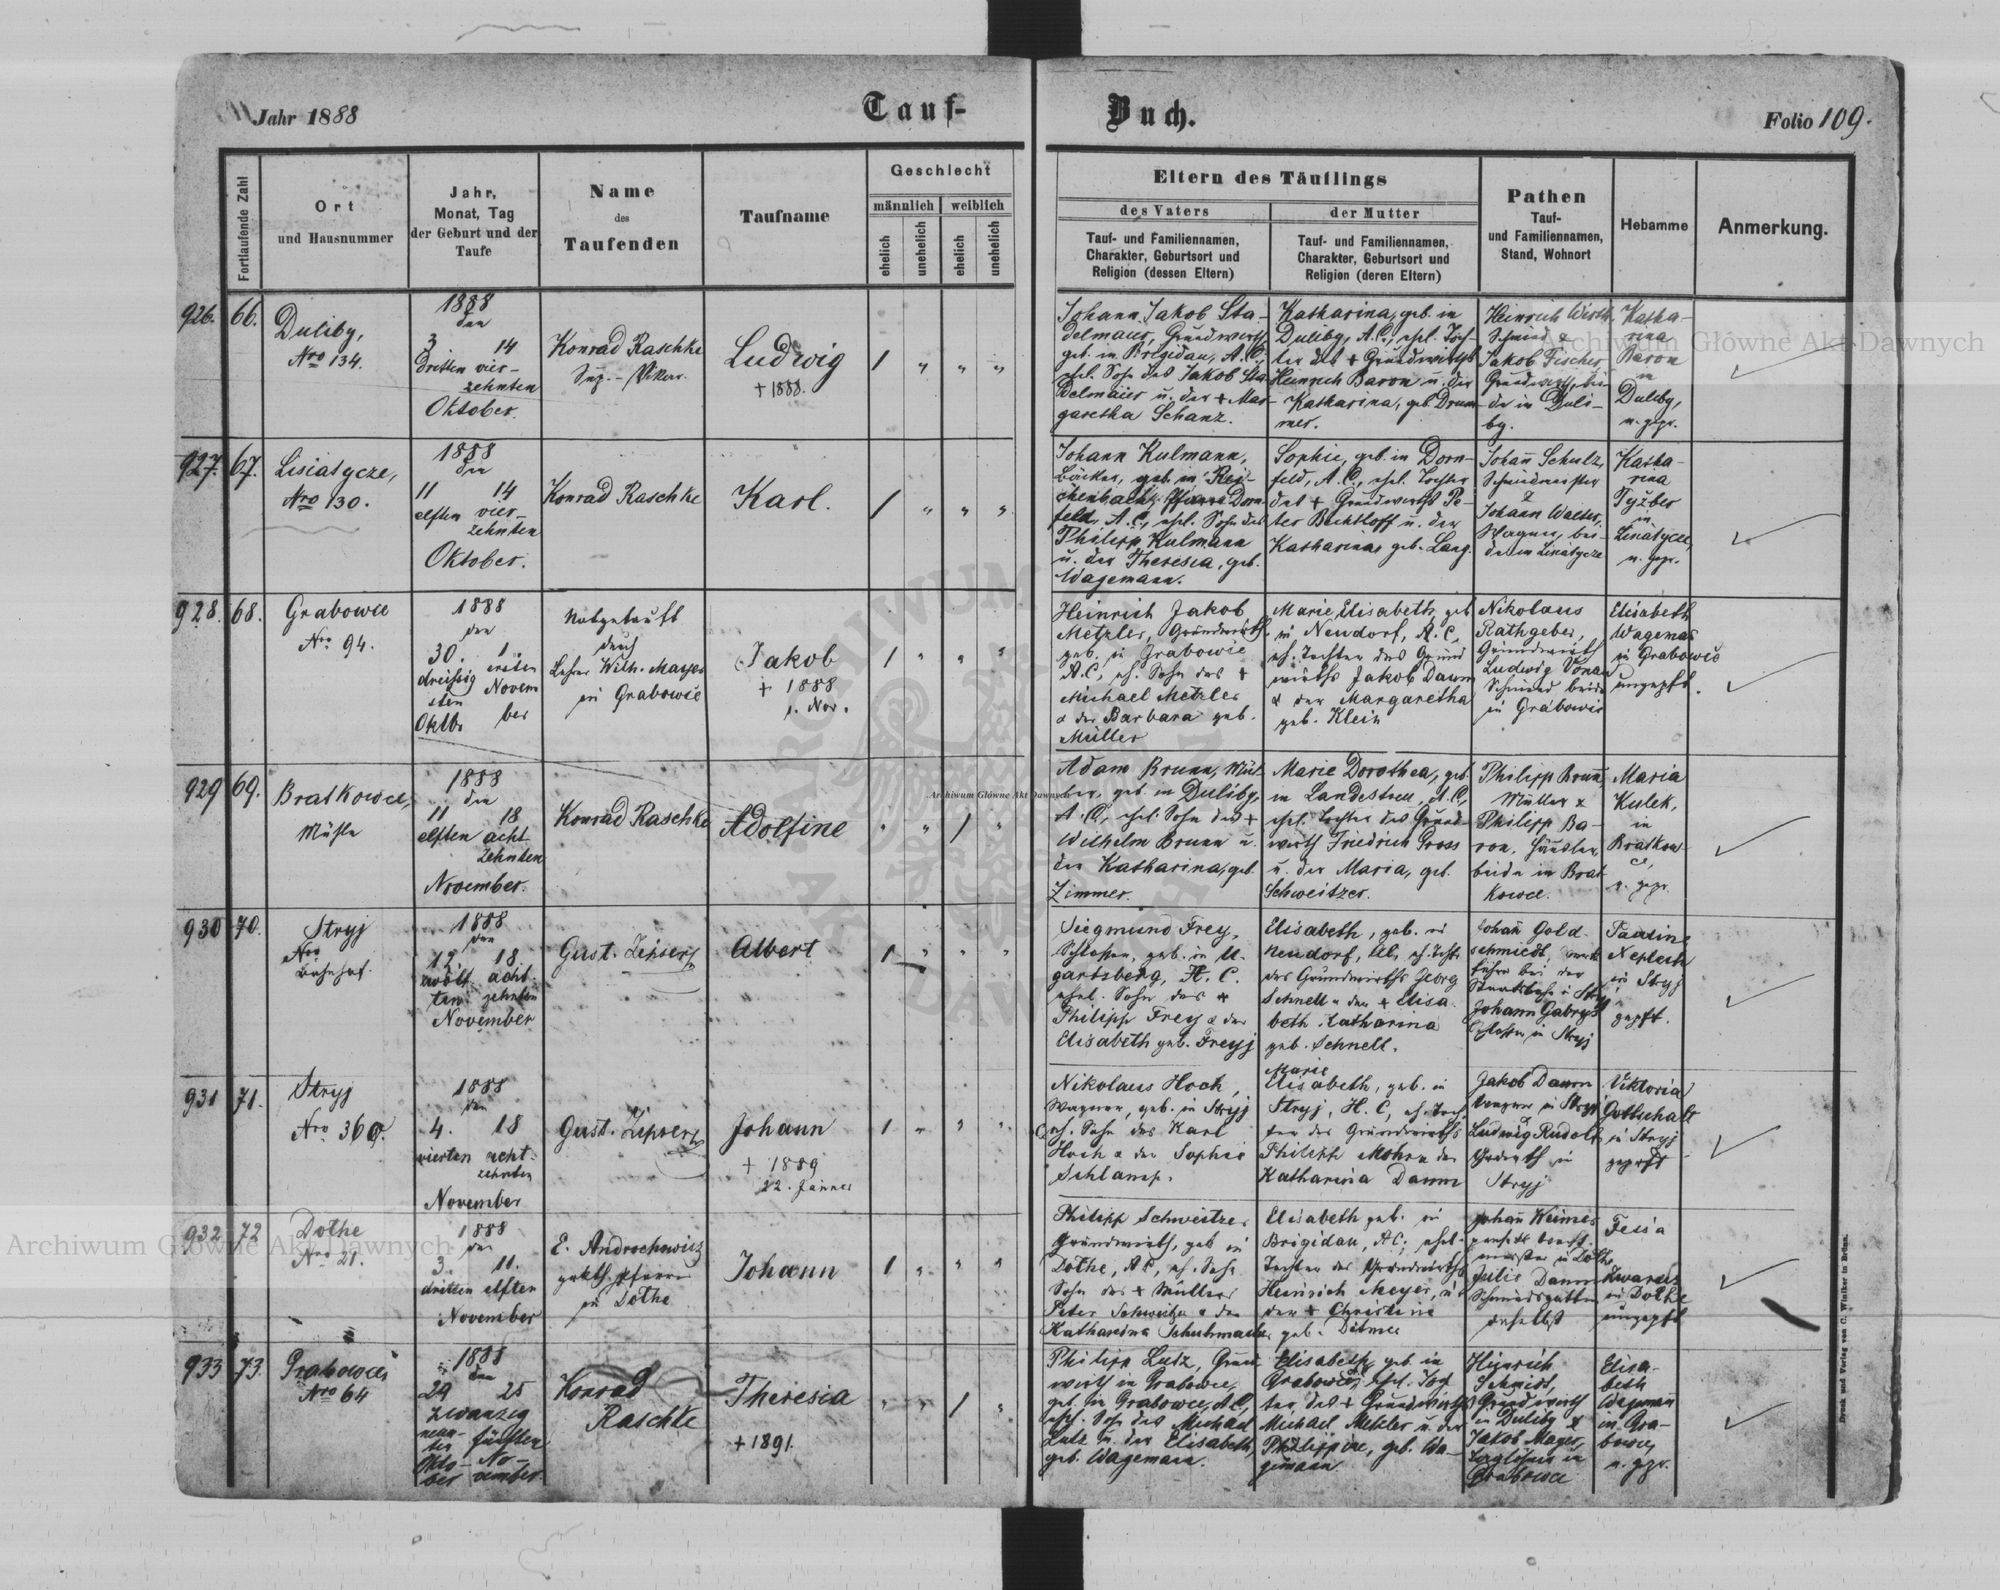 Jahr 1888
Tauf-
Buch.
Folio 109.
Fortlaufende Zahl
Ort
und Hausnummer
Jahr,
Monat, Tag
der Geburt und der
Taufe
Name
des
Taufenden
Taufname
Geschlecht
männlich
weiblich
ehelich
unehelich
ehelich
unehelich
Eltern des Täuflings
des Vaters
der Mutter
Tauf- und Familiennamen,
Charakter, Geburtsort und
Religion (dessen Eltern)
Tauf- und Familiennamen,
Charakter, Geburtsort und
Religion (deren Eltern)
Pathen
Tauf-
und Familiennamen,
Stand, Wohnort
Hebamme
Anmerkung.
926.
66.
Duliby,
Nro 134.
1888
den
3. 14
dritten vier-
zehnten
Oktober.
Konrad Raschke
Sup.-Vikar.
Ludwig
+ 1888.
1 " " "
Johann Jakob Sta-
delmaier, Grundwirth,
geb. in Brigidau, A.C.,
ehel. Sohn des Jakob Sta-
delmaier u. der + Mar-
garetha Schanz.
Katharina, geb. in
Duliby, A.C., ehel. Toch-
ter des + Grundwirths
Heinrich Baron u. der
Katharina, geb. Drum-
mer.
Heinrich Wirth,
Schmied &
Jakob Fischer,
Grundwirth, bei-
de in Duli-
by.
Katha-
rina
Baron
in
Duliby,
u. gepr.
927.
67.
Lisiatycze,
Nro 130.
1888
den
11 14
elften vier-
zehnten
Oktober.
Konrad Raschke
Karl.
1 " " "
Johann Kulmann,
Bäcker, geb. in Rei-
chenbach, Pfarre Dorn-
feld, A.C., ehel. Sohn des
Philipp Kulmann
u. der Theresia, geb.
Wagemann.
Sophie, geb. in Dorn-
feld, A.C., ehel. Tochter
des + Grundwirths Pe-
ter Bechtloff u. der
Katharina, geb. Lang.
Johann Schulz,
Schmiedmeister
&
Johann Walter,
Wagner, bei-
de in Lisiatycze
Katha-
rina
in
Lisiatycze,
u. gepr.
928.
68.
Grabowce
Nro 94.
1888
den
30. 1.
dreißig ersten
sten Novem
Oktbr ber
Notgetauft
durch
Lehrer Wilh. Mayer
in Grabowce
Jakob
+ 1888
1. Nov.
1 " " "
Heinrich Jakob
Metzler, Grundwirth,
geb. in Grabowce
A.C., eh. Sohn des +
Michael Metzler
& der Barbara geb.
Müller
Marie Elisabeth, geb
in Neudorf, A.C.,
eh. Tochter des Grund
wirths Jakob Daum
& der Margaretha
geb. Klein
Nikolaus
Rathgeber,
Grundwirth
Ludwig Vonau
Schmied beide
in Grabowce
Elisabeth
Wageman
in Grabowce
ungeprft.
929
69.
Bratkowce,
Mühle
1888
den
11 18
elften acht-
zehnten
November.
Konrad Raschke
Adolfine
" " 1 "
Adam Brunn, Mül-
ler, geb. in Duliby,
A.C., ehel. Sohn des +
Wilhelm Brunn u.
der Katharina, geb.
Zimmer.
Marie Dorothea, geb.
in Landestreu, A.C.,
ehel. Tochter des Grund-
wirth Friedrich Gross
u. der Maria, geb.
Schweitzer.
Philipp Brunn,
Müller &
Philipp Ba-
ron, Händler,
beide in Brat-
kowce.
Maria
Kulek,
in
Bratkow-
ce,
u. gepr.
930
70.
Stryj
Nro
Bahnhof.
1888
den
12. 18
zwölf- acht-
ten zehnten
November
Gust. Zipser
Albert
1 " " "
Siegmund Frey,
Schlosser, geb. in U-
gartsberg, H.C.
ehel. Sohn des +
Philipp Frey & der
Elisabeth geb. Freyj
Elisabeth, geb. in
Neudorf, AC, eh. Tocht.
des Grundwirths Georg
Schnell & der + Elisa-
beth Katharina
geb. Schnell.
Johann Gold-
schmiedt, Werk-
führer bei der
Staatsbahn in Stryj
Johann Gabrys
Schlosser in Stryj
Pauline
in Stryj
geprft.
931
71.
Stryj
Nro 369.
1888
den
4. 18
vierten acht-
zehnten
November
Gust. Zipser
Johann
+ 1889
22. Jänner
1 " " "
Nikolaus Hoch,
Wagner, geb. in Stryj
eh. Sohn des Karl
Hoch & der Sophie
Schlamp.
Marie
Elisabeth, geb. in
Stryj, H.C., eh. Toch-
ter des Grundwirths
Philipp Mohr & der
Katharina Daum
Jakob Daum
Wagner in Stryj
Ludwig Rudolf
Grdwrth in
Stryj
Viktoria
Gottschalk
in Stryj
geprft
932
72
Dolhe
Nro 21.
1888
den
3. 11.
dritten elften
November
E. Androchowicz
gr. kth. Pfarrer
in Dolhe
Johann
1 " " "
Philipp Schweitzer
Grundwirth, geb in
Dolhe, AC, eh. Sohn
des + Müllers
Peter Schweitzer & der
Katharina Schuhmacher
Elisabeth geb. in
Brigidau, AC, ehel.
Tochter des Grundwirths
Heinrich Meyer, u.
der + Christine
geb. Ditmer
Johann Weimer
meister in Dolhe
Julie Daum
Schmiedsgattin
daselbst
Fesia
in Dolhe
ungeprft
933
73.
Grabowce,
Nro 64
1888
den
29 25
zwanzig
neun- fünften
ten
Okto- No-
ber vember.
Konrad
Raschke
Theresia
+ 1891.
" " 1 "
Philipp Lutz, Grund-
wirth in Grabowce,
geb. in Grabowce, A.C.,
ehel. Sohn des Michael
Lutz u. der Elisabeth,
geb. Wagemann.
Elisabeth, geb. in
Grabowce, ehel. Toch-
ter des + Grundwirths
Michael Metzler u. der
Philippine, geb. Wa-
gemann
Heinrich
Schmidt,
Grundwirth
in Duliby &
Jakob Mayer,
in
Grabowce
Elisa-
beth
Wagemann
in Gra-
bowce,
u. gepr.
Druck und Verlag von C. Winiker in Brünn.
Archiwum Główne Akt Dawnych
Archiwum Główne Akt Dawnych
Archiwum Główne Akt Dawnych